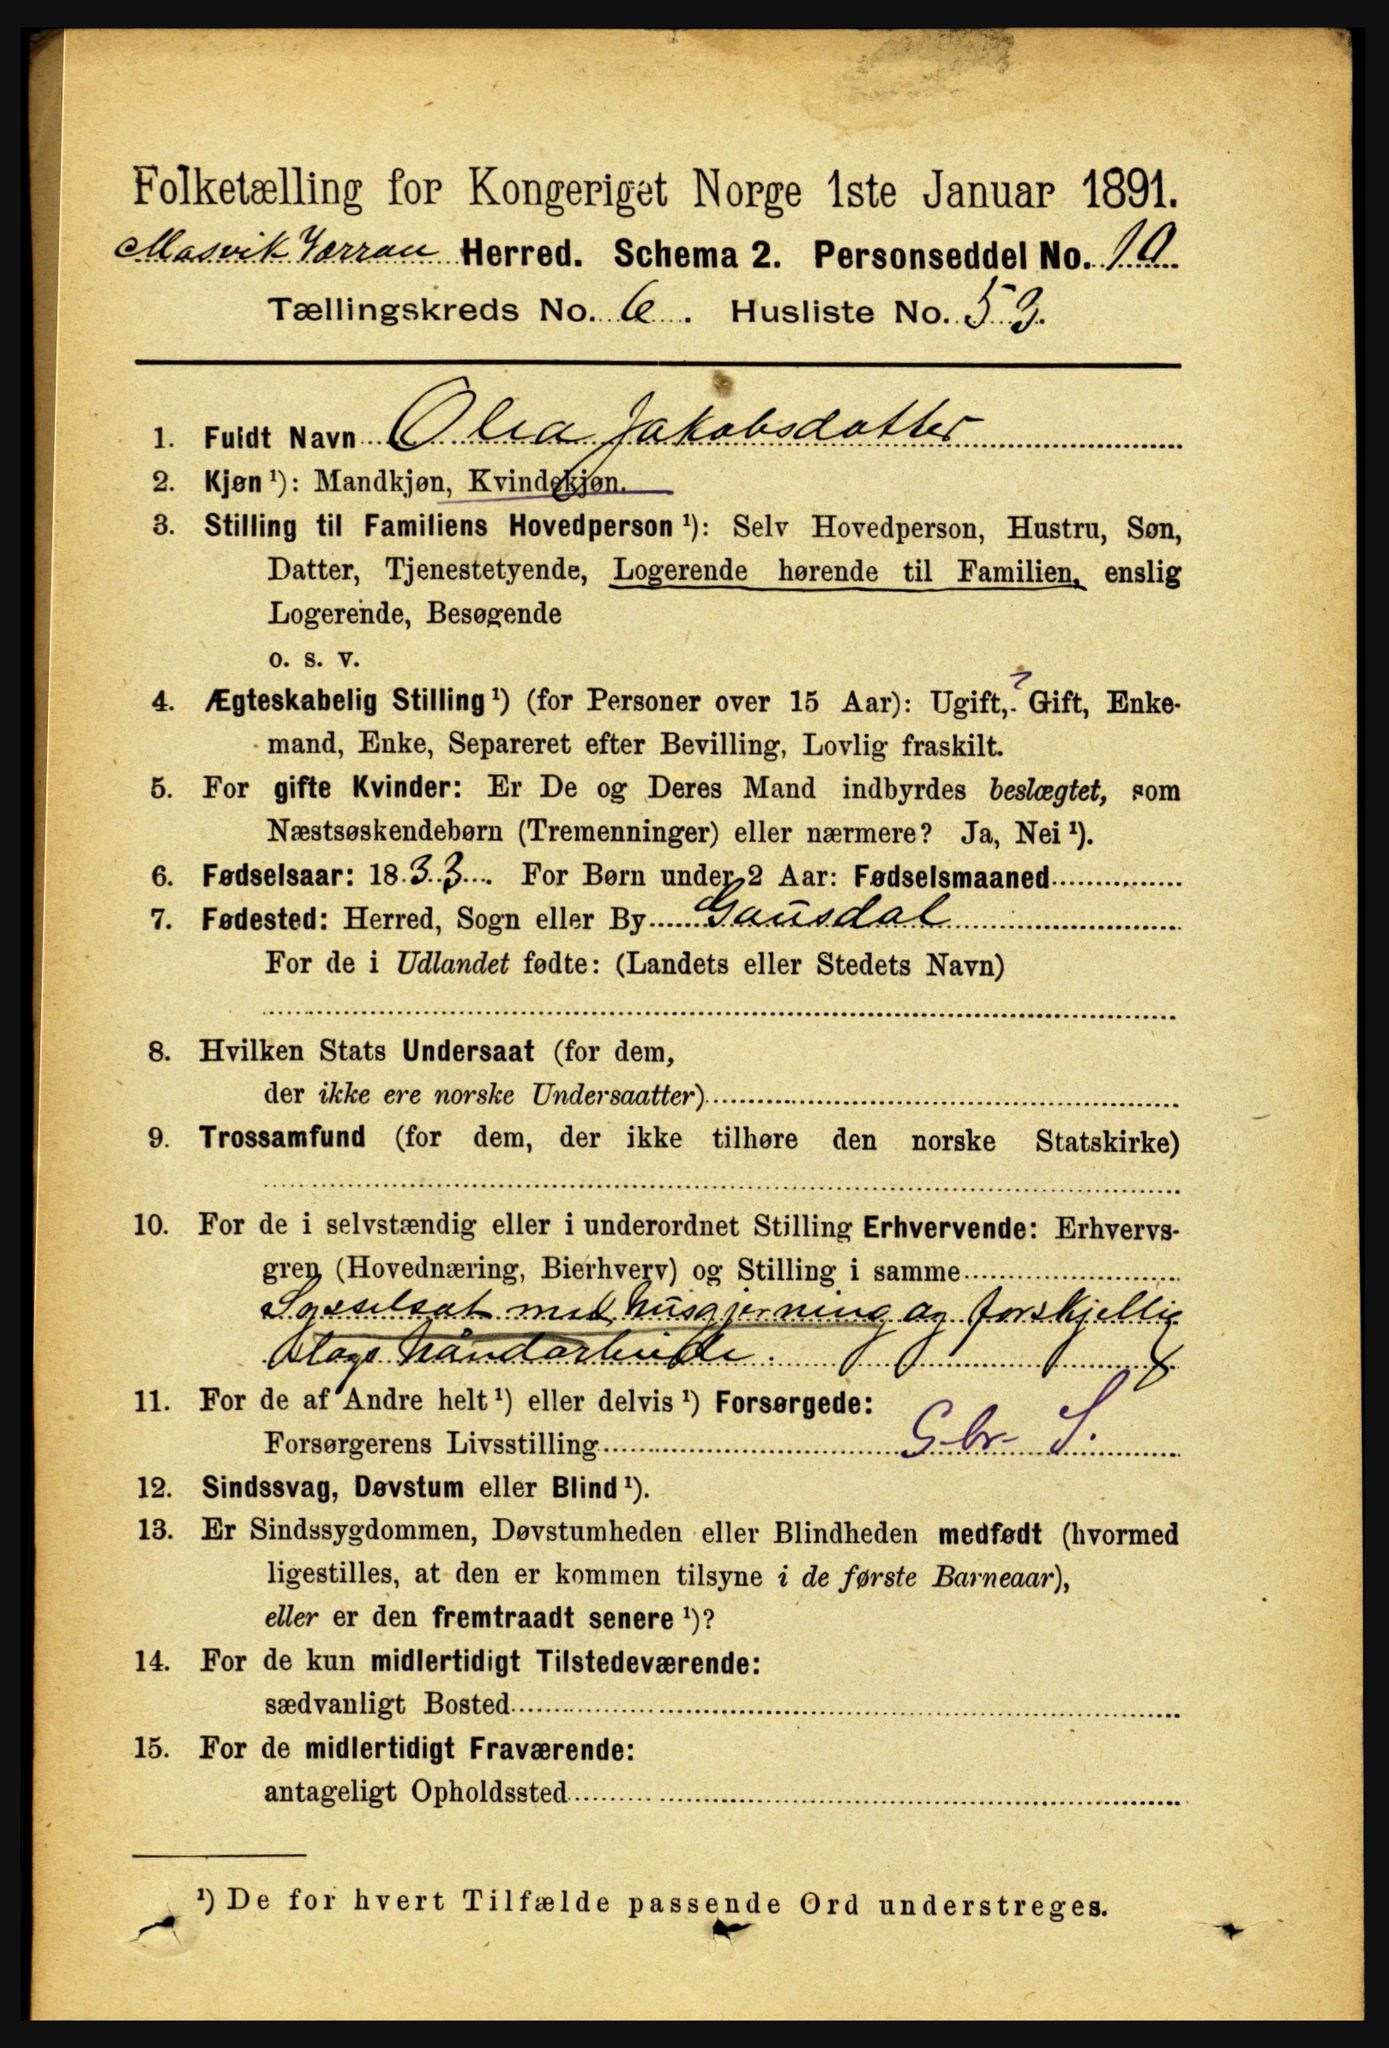 Folketælling for Kongeriget Norge 1ste Januar 1891.
Mosvik Verran Herred. Schema 2. Personseddel No. 10
Tællingskreds No. 6. Husliste No. 53.
1. Fuldt Navn Olea Jakobsdatter
2. Kjøn ¹): Mandkjøn, Kvindekjøn.
3. Stilling til Familiens Hovedperson ¹): Selv Hovedperson, Hustru, Søn,
Datter, Tjenestetyende, Logerende hørende til Familien, enslig
Logerende, Besøgende
o. s. v.
4. Ægteskabelig Stilling ¹) (for Personer over 15 Aar): Ugift, ? Gift, Enke-
mand, Enke, Separeret efter Bevilling, Lovlig fraskilt.
5. For gifte Kvinder: Er De og Deres Mand indbyrdes beslægtet, som
Næstsøskendebørn (Tremenninger) eller nærmere? Ja, Nei ¹).
6. Fødselsaar: 1833. For Børn under 2 Aar: Fødselsmaaned
7. Fødested: Herred, Sogn eller By Gausdal
For de i Udlandet fødte: (Landets eller Stedets Navn)
8. Hvilken Stats Undersaat (for dem,
der ikke ere norske Undersaatter)
9. Trossamfund (for dem, der ikke tilhøre den norske Statskirke)
10. For de i selvstændig eller i underordnet Stilling Erhvervende: Erhvervs-
gren (Hovednæring, Bierhverv) og Stilling i samme
Sysselsat med husgjerning og forskjellig
slags håndarbeide.
11. For de af Andre helt ¹) eller delvis ¹) Forsørgede:
Forsørgerens Livsstilling Gbr S.
12. Sindssvag, Døvstum eller Blind ¹).
13. Er Sindssygdommen, Døvstumheden eller Blindheden medfødt (hvormed
ligestilles, at den er kommen tilsyne i de første Barneaar),
eller er den fremtraadt senere ¹)?
14. For de kun midlertidigt Tilstedeværende:
sædvanligt Bosted
15. For de midlertidigt Fraværende:
antageligt Opholdssted
¹) De for hvert Tilfælde passende Ord understreges.